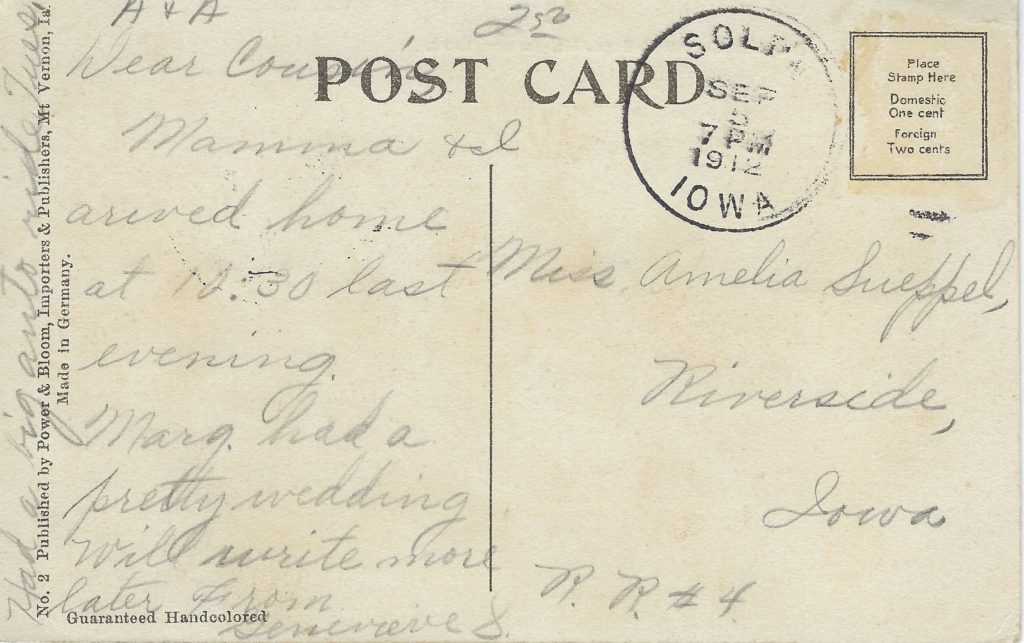 A & A
2 50
Dear Cousin,
POST CARD
Mamma & I
arived home
at 10:30 last
evening.
Marg. had a
pretty wedding
Will write more
later From
Genevieve S.
Had a big auto ride Tues.
No. 2 Published by Power & Bloom, Importers & Publishers, Mt Vernon, Ia.
Made in Germany.
Guaranteed Handcolored
SOLON
SEP
5
7 PM
1912
IOWA
Place
Stamp Here
Domestic
One cent
Foreign
Two cents
Miss Amelia Sueppel,
Riverside,
Iowa
R. R. # 4